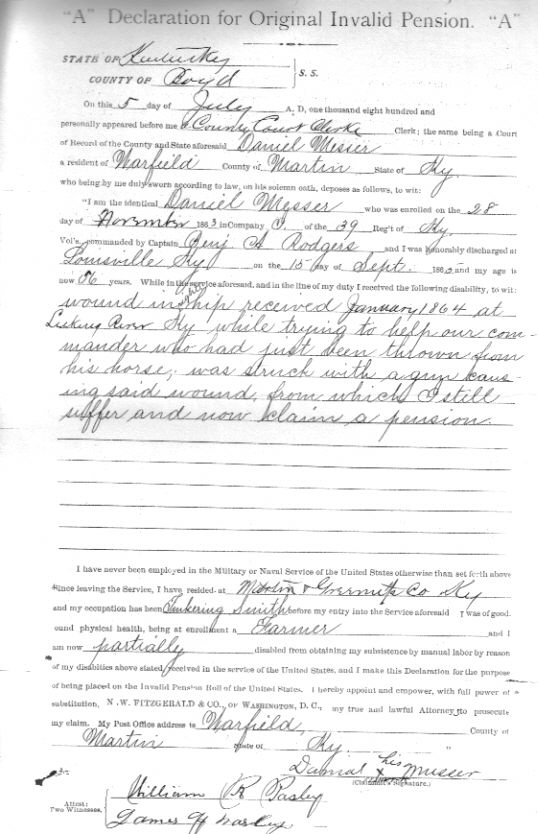 "A" Declaration for Original Invalid Pension. "A"
STATE OF Kentucky
COUNTY OF Boyd } S. S.
On this 5 day of July A. D, one thousand eight hundred and
personally appeared before me a County Court Clerke Clerk; the same being a Court
of Record of the County and State aforesaid Daniel Messer
a resident of Warfield County of Martin State of Ky.
who being by me duly sworn according to law, on his solemn oath, deposes as follows, to wit:
"I am the identical Daniel Messer who was enrolled on the 28
day of November 1863 in Company C. of the 39 Reg't of Ky.
Vol's, commanded by Captain Benj A Rodgers and I was honorably discharged at
Louisville Ky on the 15 day of Sept. 186 and my age is
now 56 years. While in the service aforesaid, and in the line of my duty I received the following disability, to wit:
wound in my hip received January 1864 at
Licking River Ky while trying to help our com-
mander who had just been thrown from
his horse, was struck with a gun caus-
ing said wound, from which I still
suffer and now claim a pension.
I have never been employed in the Military or Naval Service of the United States otherwise than set forth above
since leaving the Service, I have resided at Martin & Co Ky
and my occupation has been Smith before my entry into the Service aforesaid I was of good,
sound physical health, being at enrollment a Farmer and I
am now partially disabled from obtaining my subsistence by manual labor by reason
of my disabilties above stated, received in the service of the United States, and I make this Declaration for the purpose
of being placed on the Invalid Pension Roll of the United States. I hereby appoint and empower, with full power of
substitution, N. W. FITZGERALD & CO., OF WASHINGTON, D. C., my true and lawful Attorney to prosecute
my claim. My Post Office address is Warfield, County of
Martin State of Ky. "
Danial his x mark Musser
(Claimant's Signature.)
Attest:
Two Witnesses.
William R Pasley
James